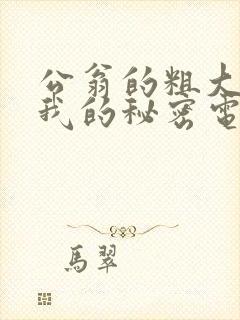 公翁的粗大
我的秘密電
馬翠